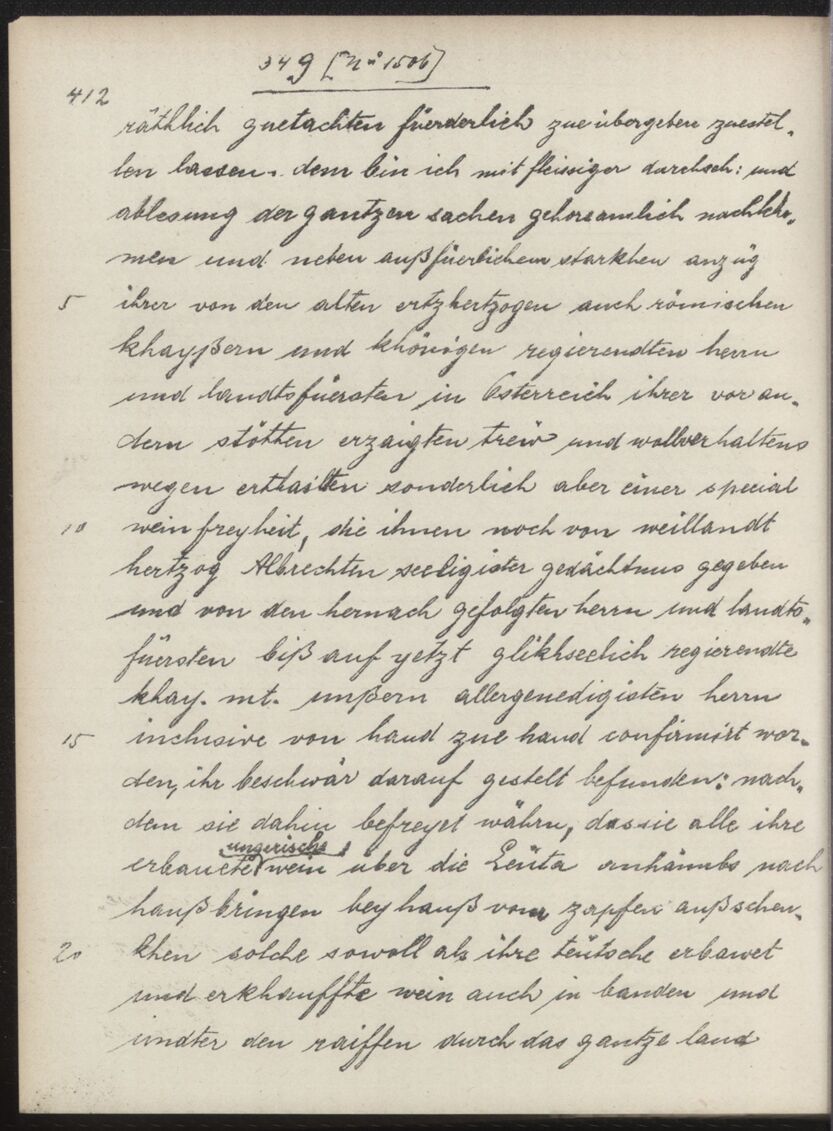 349 [N° 1506]
412
räthlich guetachten füerderlich zue übergeben zuestel-
len lassen. dem bin ich mit fleissiger durchseh: und
ablesung der gantzen sachen gehorsamlich nachkho-
men und neben außfüerlichem starkhen anzüg
5 ihrer von den alten ertzhertzogen auch römischen
khayßern und khönigen regierendten herrn
und landtsfüersten in Österreich ihrer vor an-
dern stötten erzaigten treiw und wollverhaltens
wegen erthailten sonderlich aber einer special
10 weinfreyheit, die ihnen noch von weillandt
hertzog Albrechten seeligister gedächtnus gegeben
und von den hernach gefolgten herrn und landts-
füersten biß auf yetzt glikhseelich regierendte
khay. mt. unßern allergenedigisten herrn
15 inclusive von hand zue hand confirmirt wor-
den, ihr beschwär darauf gestelt befunden: nach-
dem sie dahin befreyet währn, das sie alle ihre
ungerische
erbauete wein über die Leüta anhaimbs nach
hauß bringen bey hauß vom zapfen außschen-
20 khen solche sowoll als ihre teütsche erbawet
und erkhauffte wein auch in banden und
undter den raiffen durch das gantze land